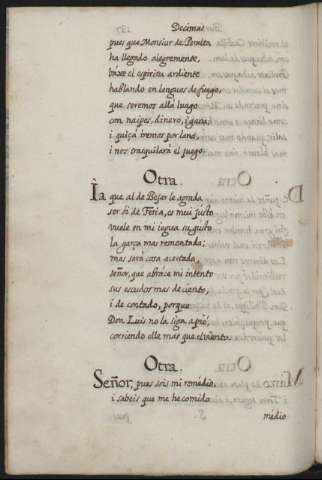 Decimas
pues que Monsiur de Peralta
ha llegado alegremente,
baxe el espiritu ardiente
hablando en lenguas de fuego,
que seremos alla luego
con naipes, dinero, i gana
i quiça iremos por lana,
i nos trasquilará el juego.
Otra.
Ia que al de Bejar le agrada
ser de Feria, es mui justo
vuele en mi iegua su gusto
la garça mas remontada:
mas será cosa acertada,
señor, que abrace mi intento
sus escudos mas de ciento,
i de contado, porque
Don Luis no la siga a pié,
corriendo elle mas que el viento.
Otra.
Señor, pues sois mi remedio,
i sabeis que me he comido
medio